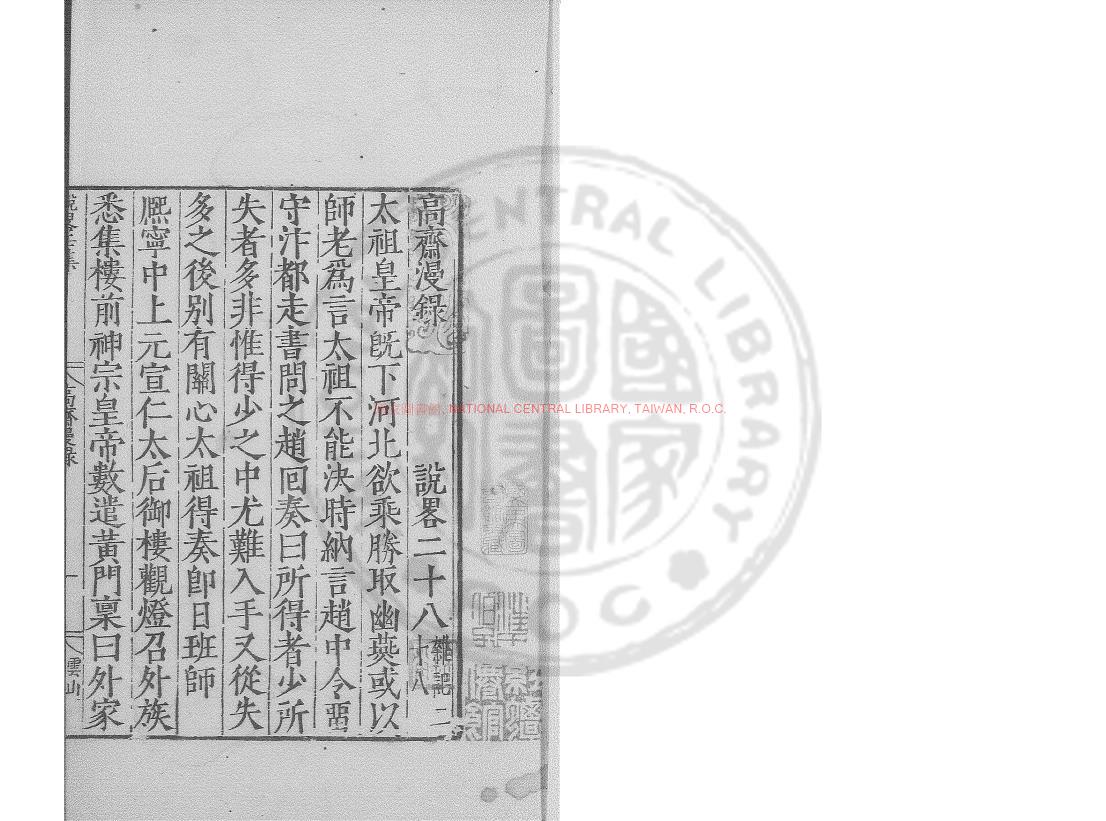 高齋漫錄 說畧二十八 雜記二十八
太祖皇帝旣下河北欲乘勝取幽燕或以
師老爲言太祖不能決時納言趙中令畱
守汴都走書問之趙回奏曰所得者少所
失者多非惟得少之中尤難入手又從失
多之後別有關心太祖得奏卽日班師
熈寧中上元宣仁太后御樓觀燈召外族
悉集樓前神宗皇帝數遣黃門稟曰外家
高齋漫錄 一 雲山
國家圖書館, NATIONAL CENTRAL LIBRARY, TAIWAN, R.O.C.
CENTRAL LIBRARY
ROC
國家圖書館